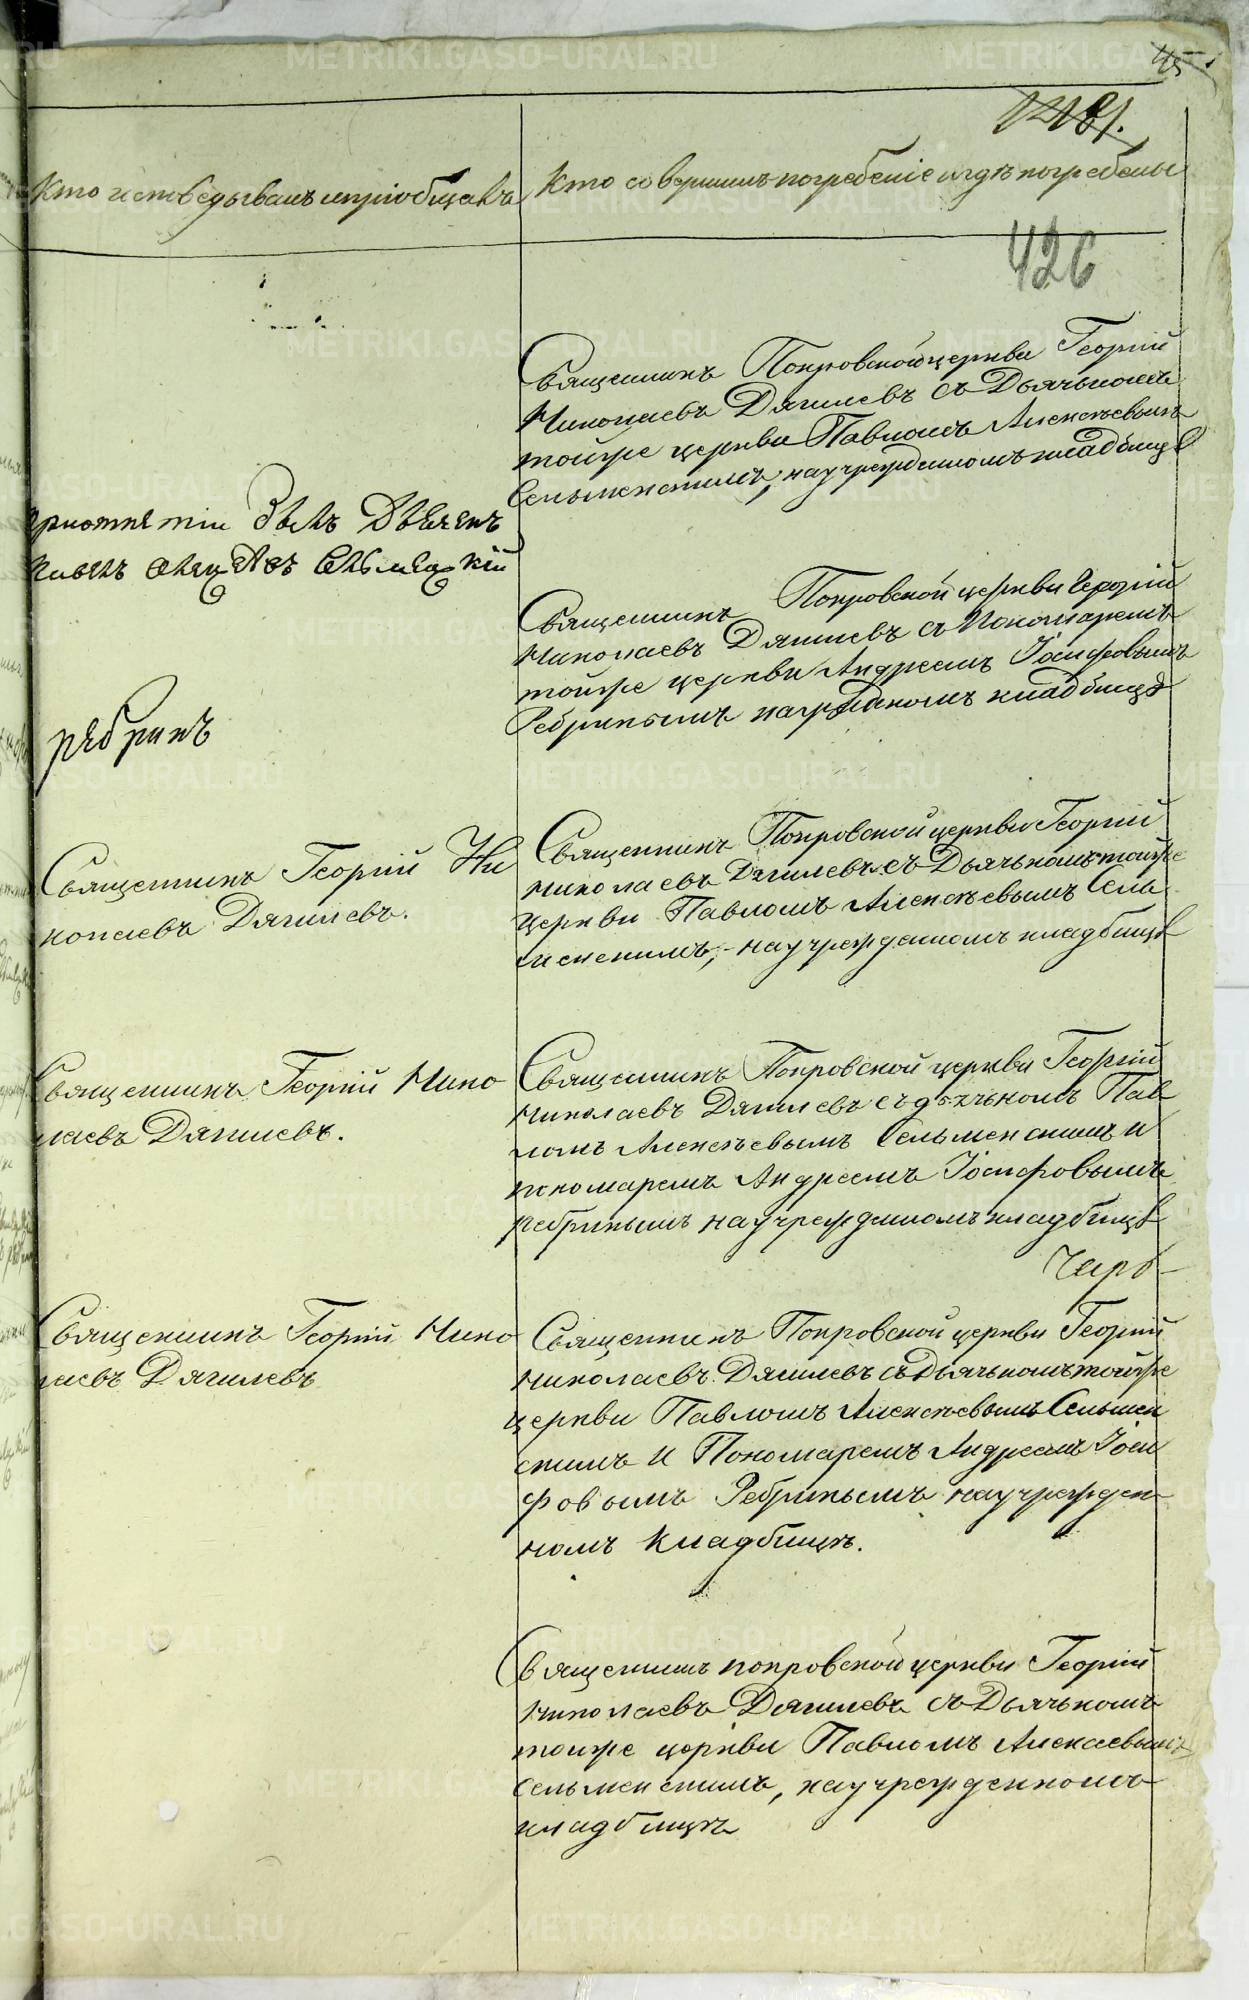 45
1218.
Кто исповѣдывалъ и пріобщалъ
Кто совершилъ погребеніе и гдѣ погребены
426
Священникъ Покровской церкви Георгій
Николаевъ Дягилевъ съ Дьячькомъ
тойже церкви Павломъ Алексѣевымъ
Сельменскимъ, на учрежденномъ кладбищѣ
при отпетіи былъ дьячекъ
Павелъ Алексѣевъ Сельменскій
Священникъ Покровской церкви Георгій
Николаевъ Дягилевъ съ Пономаремъ
тойже церкви Андреемъ Іосифовымъ
Ребринымъ на кладбищѣ
ребринъ
Священникъ Георгій Ни
колаевъ Дягилевъ.
Священникъ Покровской церкви Георгій
Николаевъ Дягилевъ съ Дьячькомъ тойже
церкви Павломъ Алексѣевымъ Сель
менскимъ, на учрежденномъ кладбищѣ
Священникъ Георгій Нико
лаевъ Дягилевъ.
Священникъ Покровской церкви Георгій
Николаевъ Дягилевъ съ дьячькомъ Пав
ломъ Алексѣевымъ Сельменскимъ и
пономаремъ Андреемъ Іосифовымъ
ребринымъ на учрежденномъ кладбищѣ
Священникъ Георгій Нико
лаевъ Дягилевъ
Священникъ Покровской церкви Георгій
Николаевъ Дягилевъ съ Дьячькомъ тойже
церкви Павломъ Алексѣевымъ Сельмен
скимъ и Пономаремъ Андреемъ Іоси
фовымъ Ребринымъ на учрежден-
номъ кладбищѣ.
Священникъ покровской церкви Георгій
Николаевъ Дягилевъ съ Дьячькомъ
тойже церкви Павломъ Алексеевымъ
Сельменскимъ, на учрежденномъ
кладбищѣ
METRIKI.GASO-URAL.RU